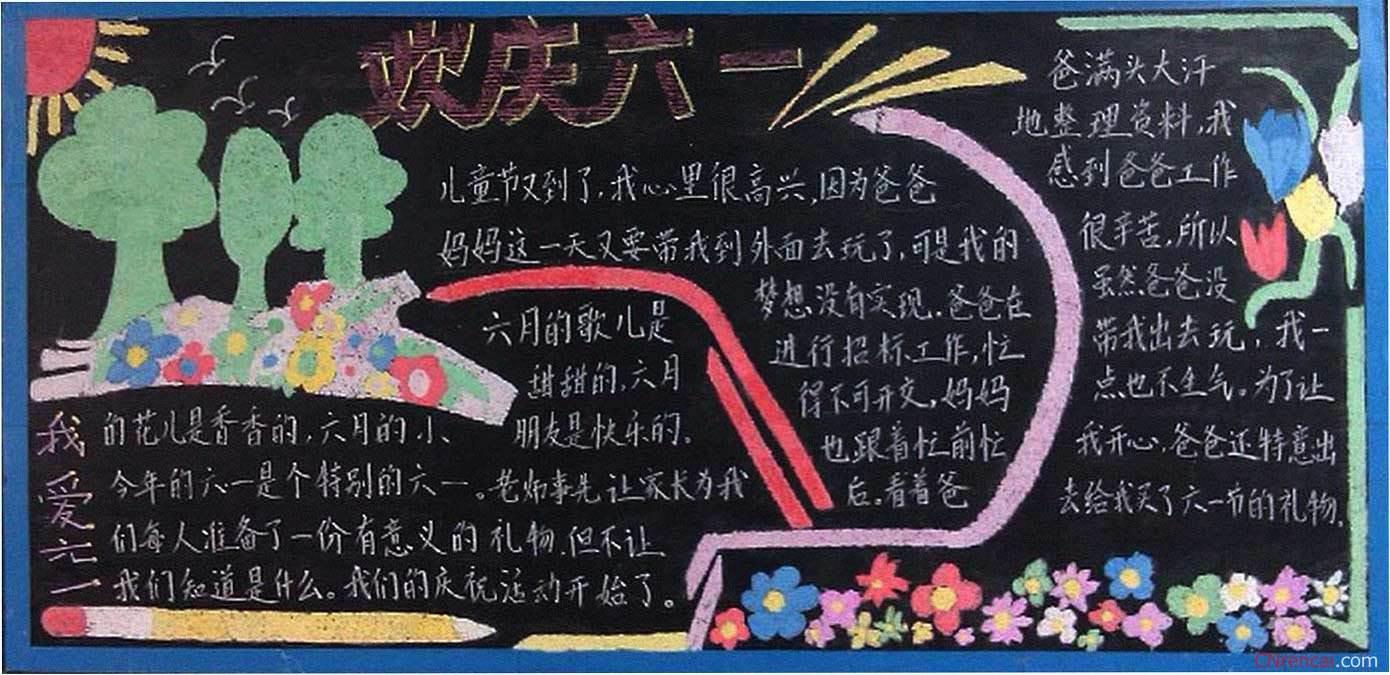 欢庆六一
儿童节又到了,我心里很高兴,因为爸爸
妈妈这一天又要带我到外面去玩了,可是我的
梦想没有实现.爸爸在
进行招标工作,忙
得不可开交,妈妈
也跟着忙前忙
后。看着爸
爸满头大汗
地整理资料,我
感到爸爸工作
很辛苦,所以
虽然爸爸没
带我出去玩,我一
点也不生气。为了让
我开心.爸爸还特意出
去给我买了六一节的礼物.
我爱六一
六月的歌儿是
甜甜的,六月
的花儿是香香的,六月的小
朋友是快乐的。
今年的六一是个特别的六一。老师事先让家长为我
们每人准备了一份有意义的礼物.但不让
我们知道是什么。我们的庆祝活动开始了。
CNrencai.com